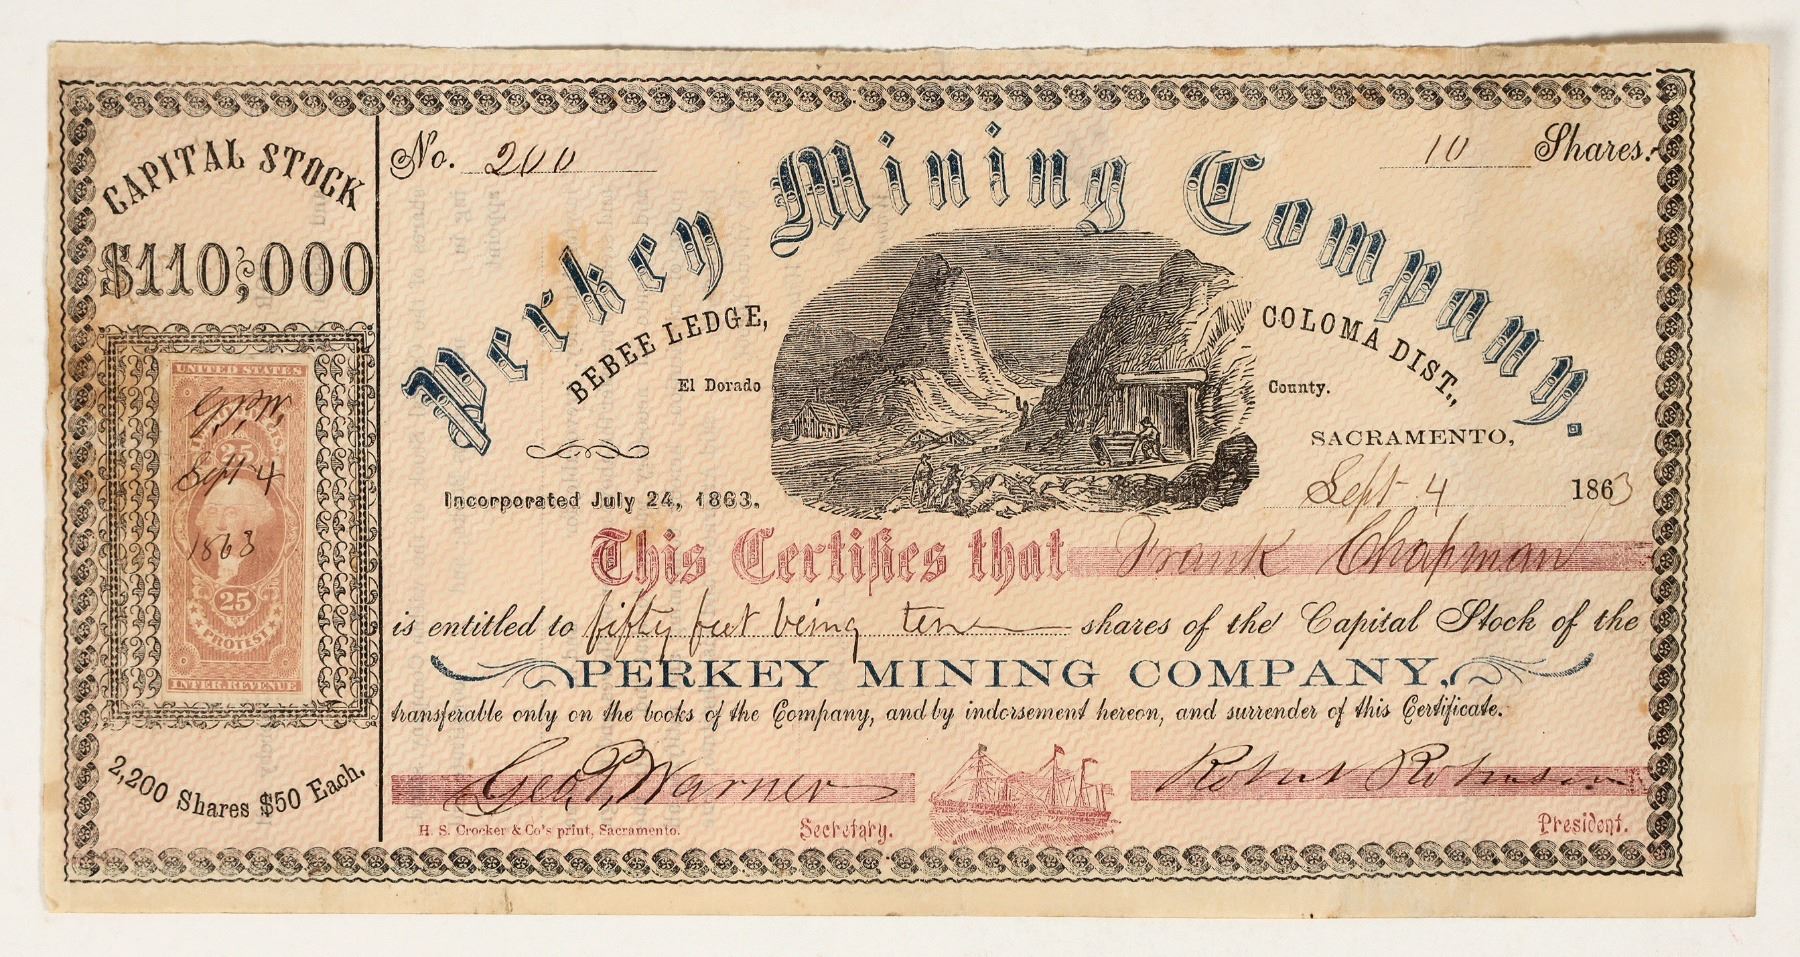 CAPITAL STOCK
$110,000
UNITED STATES
G.P.W.
25
Sept 4
1863
25
PROTEST
INTER. REVENUE
2,200 Shares $50 Each.
No. 200
10 Shares.
Perkey Mining Company.
BEBEE LEDGE,
COLOMA DIST.,
El Dorado
County.
SACRAMENTO,
Incorporated July 24, 1863.
Sept 4 1863
This Certifies that Frank Chapman
is entitled to fifty feet being ten shares of the Capital Stock of the
PERKEY MINING COMPANY,
transferable only on the books of the Company, and by indorsement hereon, and surrender of this Certificate.
Geo. P. Warner
Robert Robinson
H. S. Crocker & Co's print, Sacramento.
Secretary.
President.